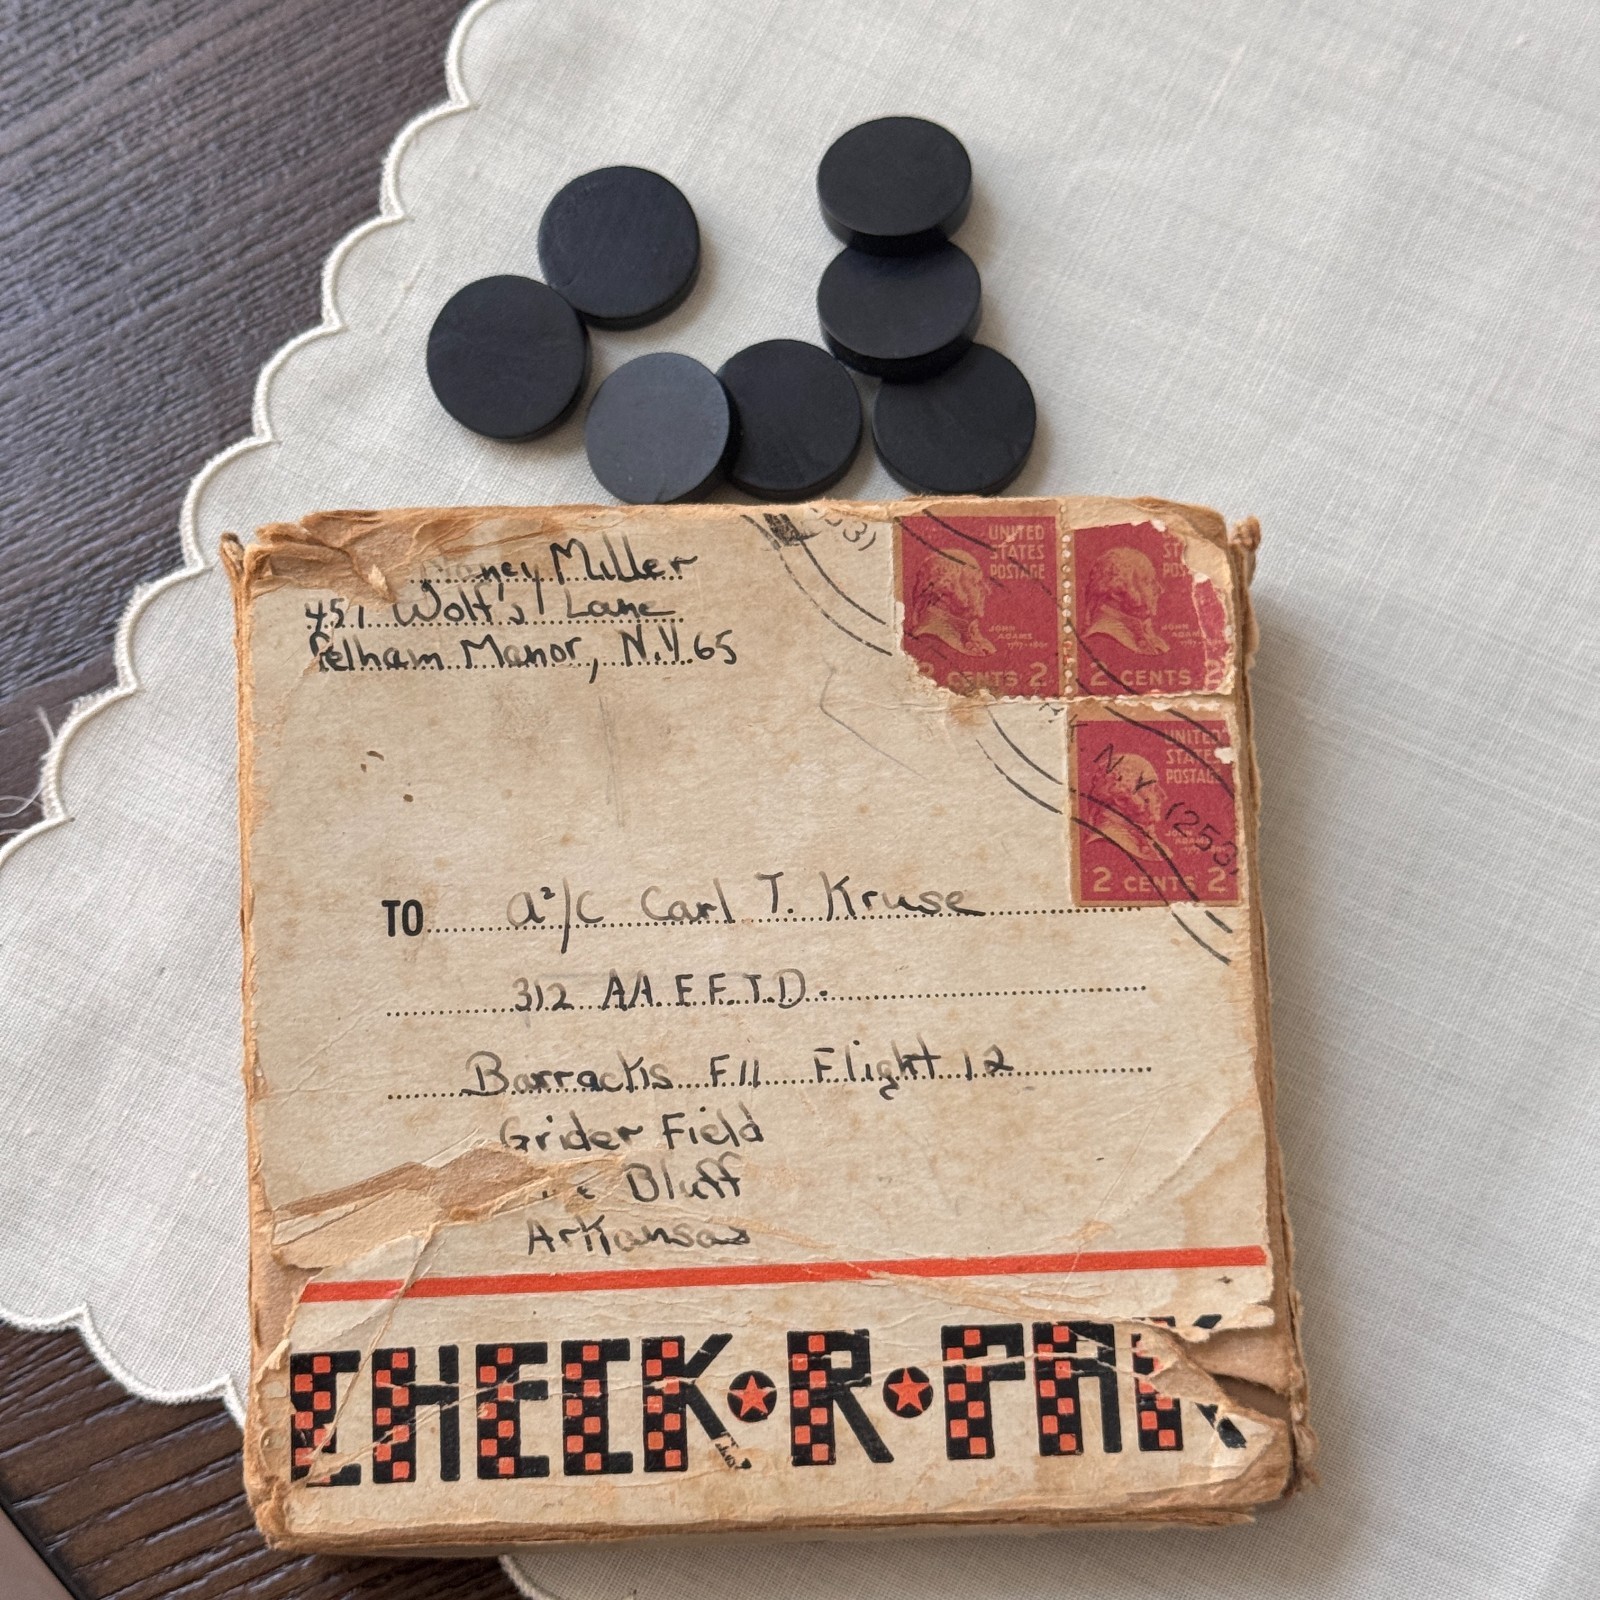 Miller
451 Wolf's Lane
Pelham Manor, N.Y. 65
UNITED STATES POSTAGE
JOHN ADAMS
2 CENTS 2
JOHN ADAMS
2 CENTS 2
N.Y. (253)
UNITED STATES POSTAGE
JOHN ADAMS
2 CENTS 2
TO A²/C Carl T. Kruse
312 AA.F.F.T.D.
Barracks F11 Flight 12
Grider Field
Bluff
Arkansas
CHECK•R•PAK